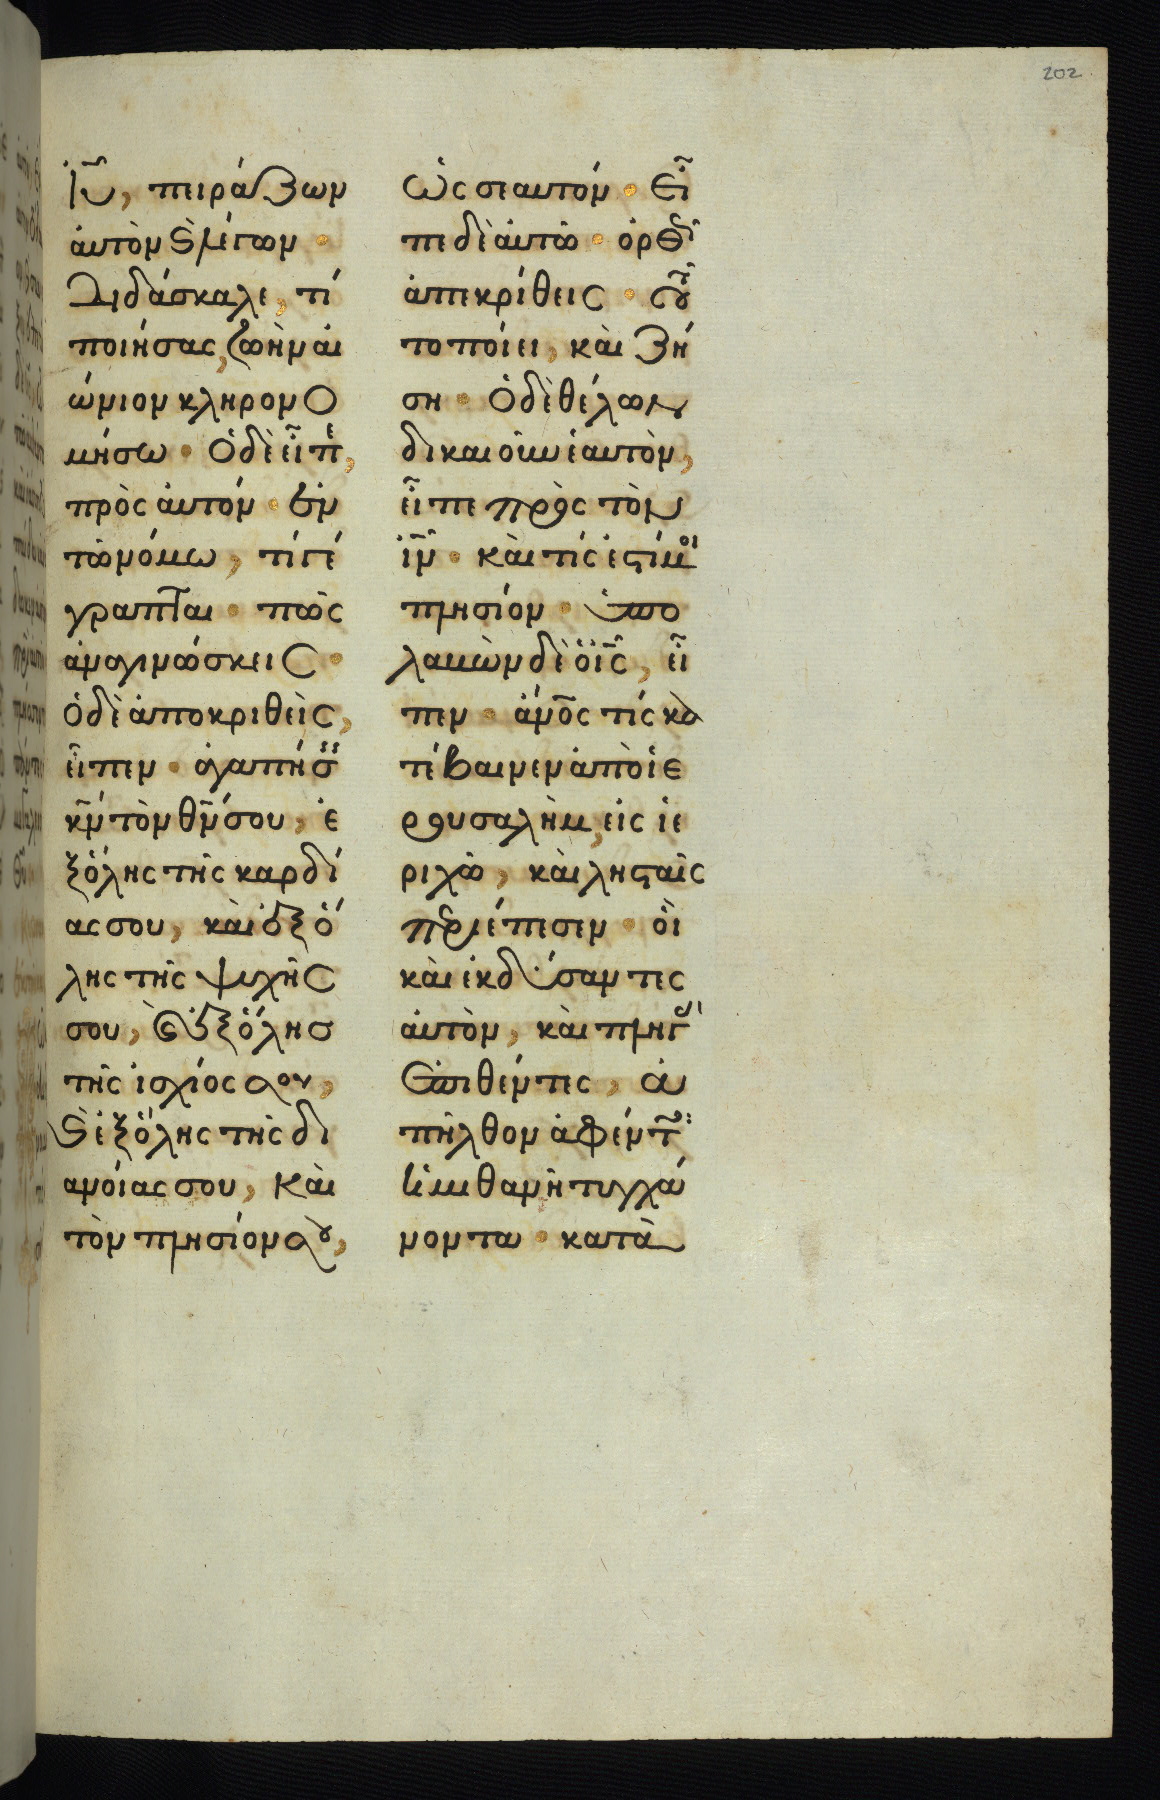 202
ἰῦ, πειράζων
ἀυτὸν ϗ λέγων ·
Διδάσκαλε, τί
ποιήσας, ζωὴν αἰ
ώνιον κληρονο
μήσω · Ὁ δὲ εἶπε,
πρὸς ἀυτόν · ἐν
τῶ νόμω, τί γέ
γραπται · πῶς
ἀναγινώσκεις ·
ὁ δὲ ἀποκριθεὶς,
εἶπεν · ἀγαπήσεις
κ̅ν̅ τὸν θ̅ν̅ σου, ἐ
ξ ὅλης τῆς καρδί
ας σου, καὶ ἐξ ὅ
λης τῆς ψυχῆς
σου, καὶ ἐξ ὅλης
τῆς ἰσχύος σου,
ϗ ἐξ ὅλης τῆς δι
ανοίας σου, καὶ
τὸν πλησίον σου,
ὡς σεαυτόν · εἶ
πε δὲ ἀυτῶ · ὀρθῶς
ἀπεκρίθεις · τοῦ
το ποίει, καὶ ζή
ση · Ὁ δὲ θέλων
δικαιοῦν ἑαυτὸν,
εἶπε πρὸς τὸν
ἰ̅ν̅ · καὶ τίς ἐστί μοι
πλησίον · ὑπο
λαβὼν δὲ ὁ ἰ̅ς̅, εἶ
πεν · ἄν̅ο̅ς τίς κα
τέβαινεν ἀπὸ ἱε
ρουσαλὴμ, εἰς ἱε
ριχῶ, καὶ λησταῖς
περιέπεσεν · οἳ
καὶ ἐκδύσαντες
ἀυτὸν, καὶ πληγὰς
ἐπιθέντες, ἀ
πῆλθον ἀφέντες
ἡμιθανῆ τυγχά
νοντα · κατὰ